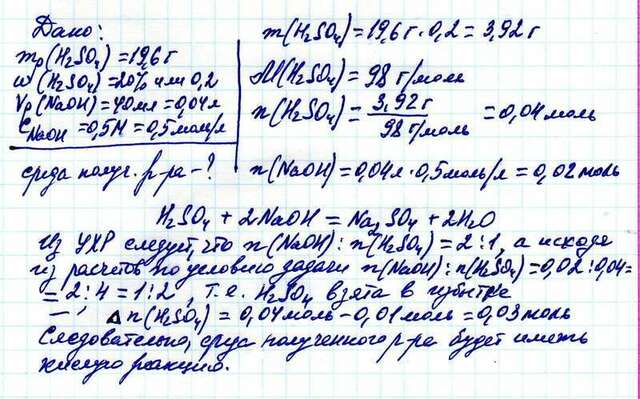 Дано:
m р (H₂SO₄) = 19,6 г
w (H₂SO₄) = 20% или 0,2
Vр (NaOH) = 40 мл = 0,04 л
C NaOH = 0,5М = 0,5 моль/л
среда получ. р-ра - ?
m(H₂SO₄) = 19,6 г · 0,2 = 3,92 г
M(H₂SO₄) = 98 г/моль
n(H₂SO₄) = 3,92 г / 98 г/моль = 0,04 моль
n(NaOH) = 0,04 л · 0,5 моль/л = 0,02 моль
H₂SO₄ + 2NaOH = Na₂SO₄ + 2H₂O
Из УХР следует, что n(NaOH) : n(H₂SO₄) = 2:1, а исходя
из расчетов по условию задачи n(NaOH) : n(H₂SO₄) = 0,02 : 0,04 =
= 2:4 = 1:2, т.е. H₂SO₄ взята в избытке
Δ n(H₂SO₄) = 0,04 моль - 0,01 моль = 0,03 моль
Следовательно, среда полученного р-ра будет иметь
кислую реакцию.